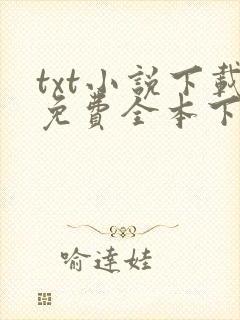 txt小說下載
免費全本下
喻達娃